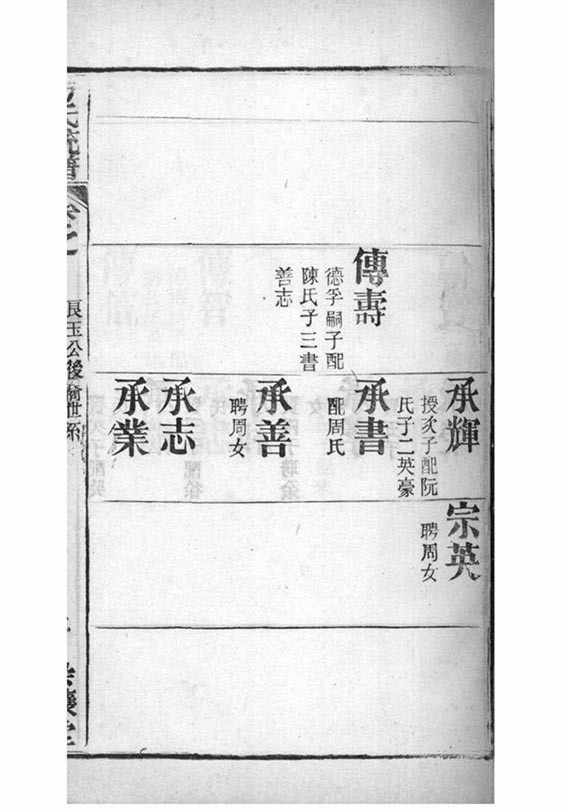 傳壽
德孚嗣子配
陳氏子三書
善志
承輝
授次子配阮
氏子二英豪
承書
配周氏
承善
聘周女
承志
承業
宗英
聘周女
氏統譜
長玉公後裔世系